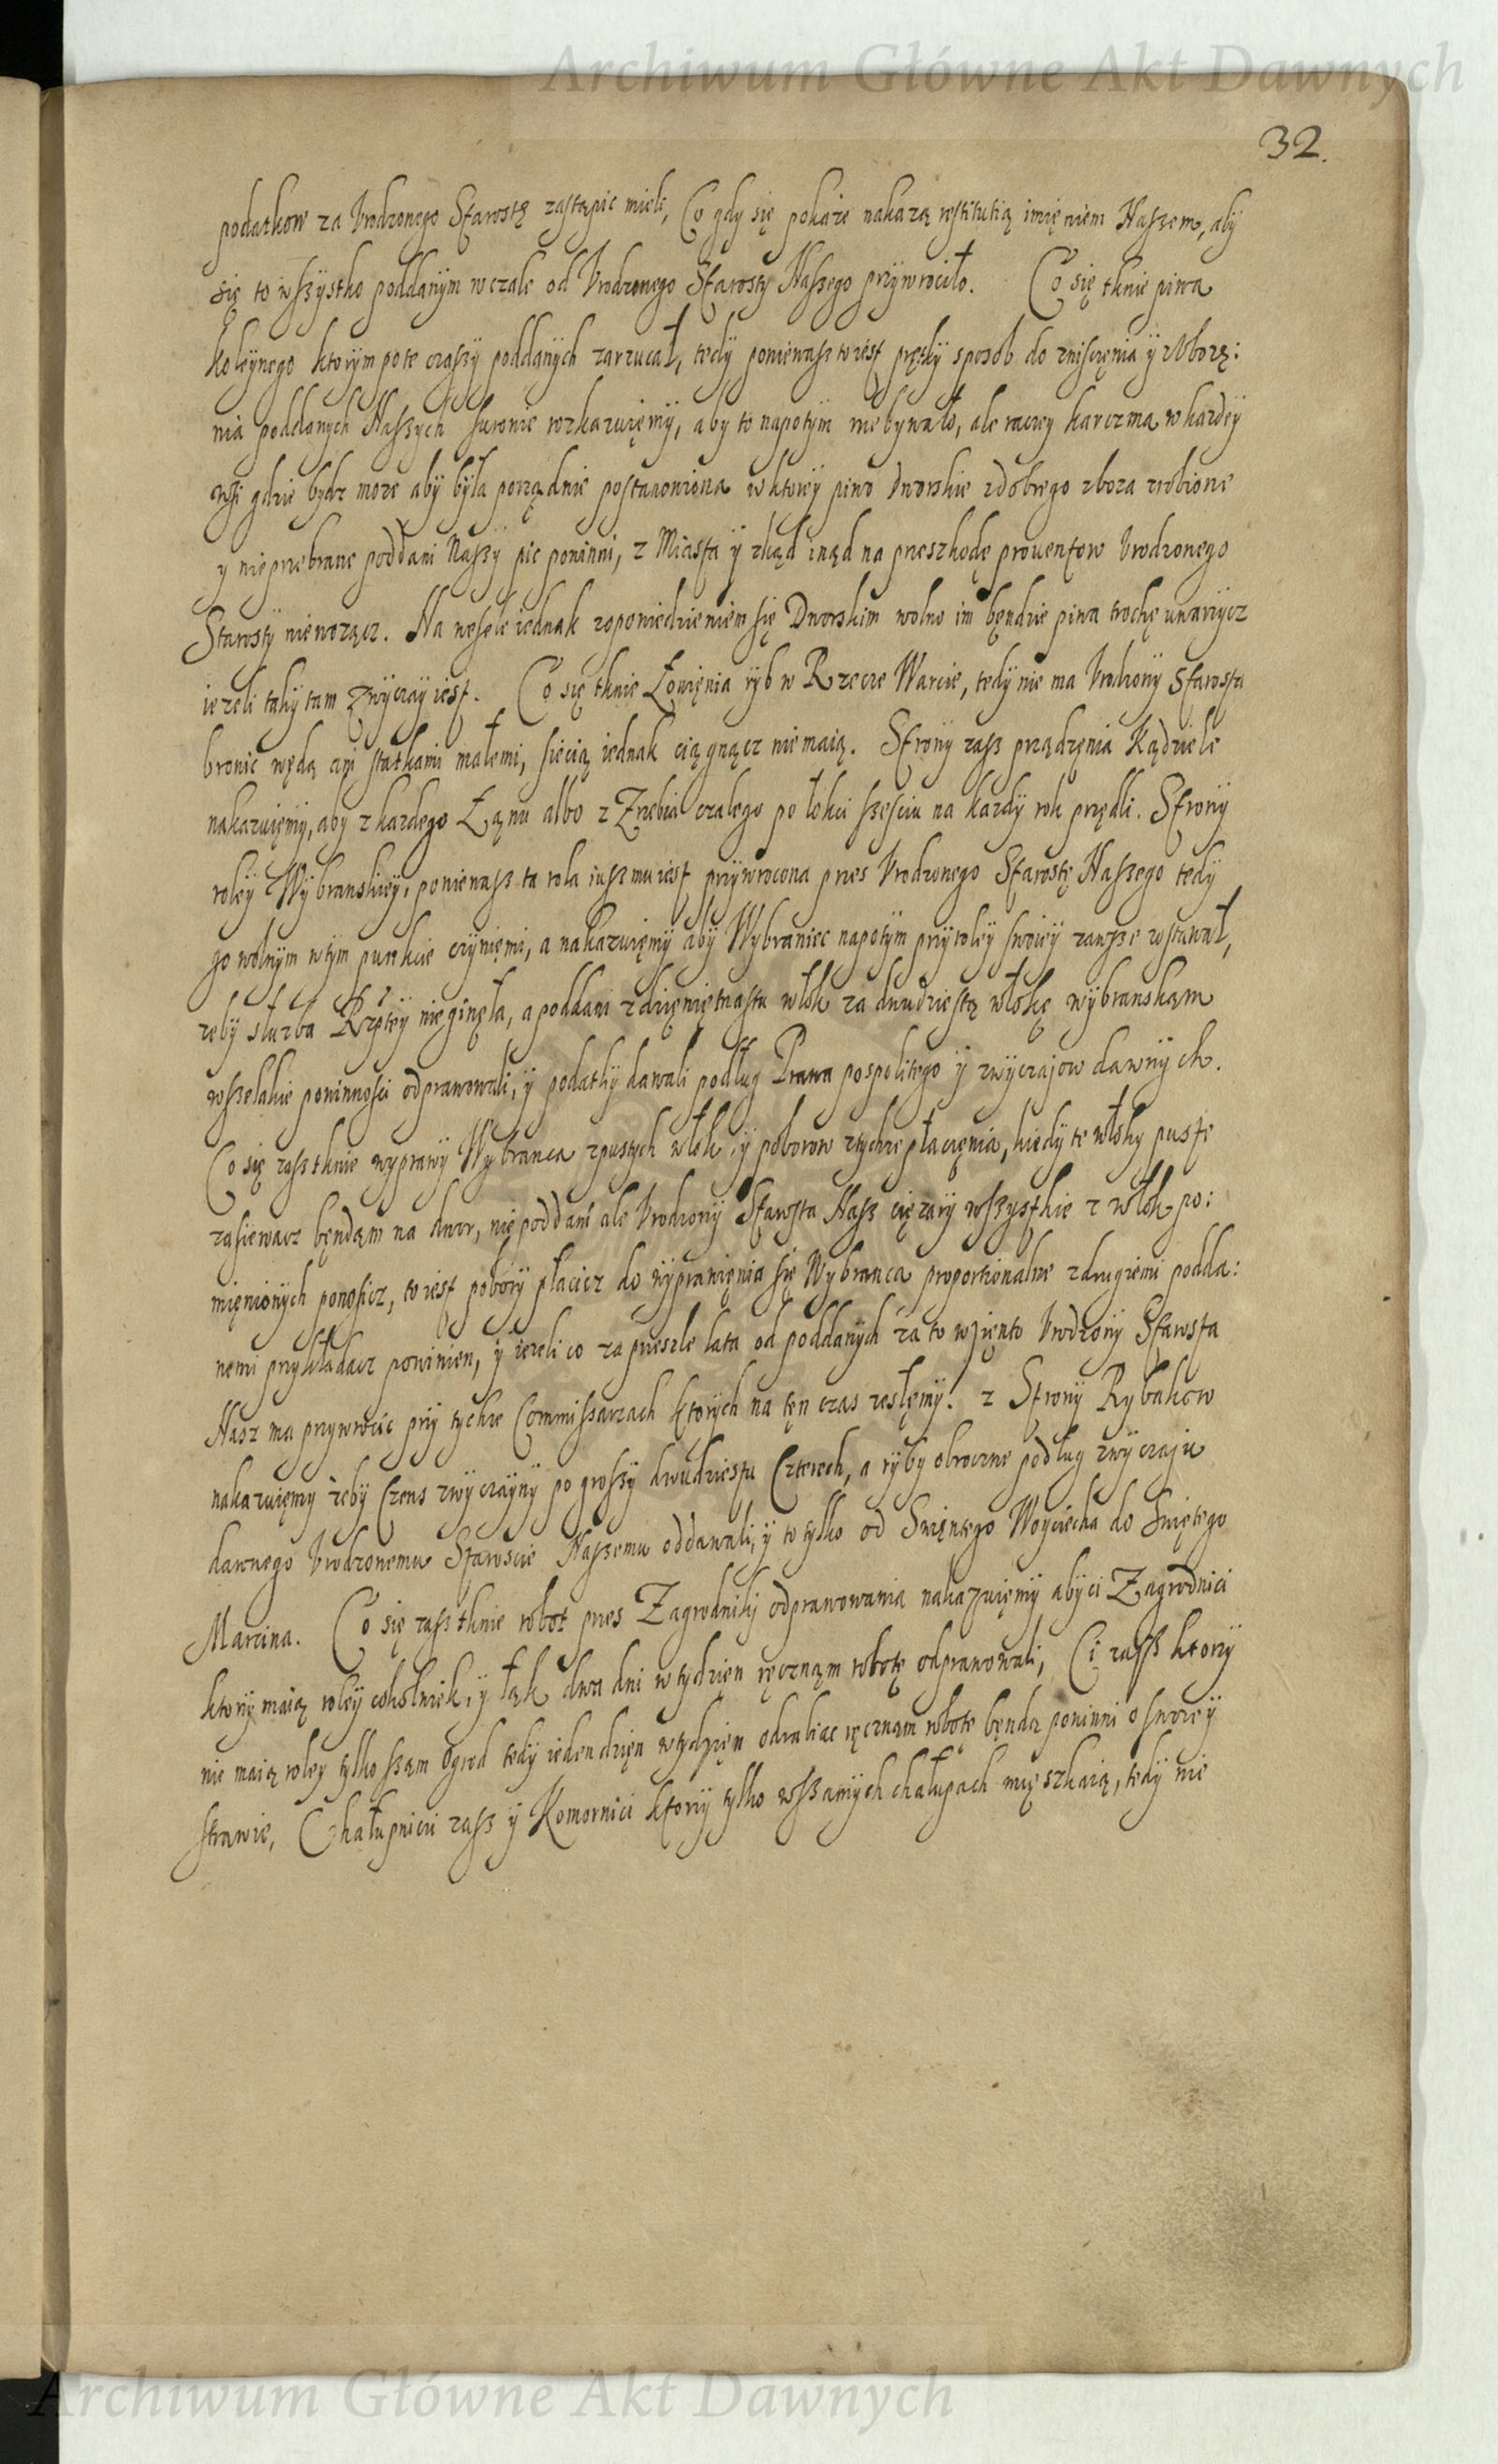 Archiwum Główne Akt Dawnych
32.
podatkow za Vrodzonego Starostę zastąpic mieli, Co gdy się pokaże nakażą restitutią imięniem Naszem, aby
się to wszystko poddanÿm wczale od Vrodzonego Starosty Naszego przÿwrociło. Co się tknie piwa
koleÿnego ktorÿm po te czaszÿ poddanÿch zarzucał, tedÿ poniewasz to iest prętkÿ sposob do zniszczęnia ÿ vbożę:
nia poddanÿch Naszÿch surowie rozkazuięmÿ, aby to napotÿm niebywało, ale raczey karczma w każdeÿ
wsi gdzie bydz może abÿ bÿła porządnie postanowiona w ktoreÿ piwo Dworskie z dobrego zboża zrobione
y nieprzebrane poddani Naszÿ pic powinni, z Miasta ÿ zkąd inąd na przeszkodę prouentow Vrodzonego
Starostÿ niewożącz. Na wesele iednak zopowiedzieniem się Dworskim wolno im będzie piwa trochę uwarzÿcz
ieżeli takÿ tam zwÿczaÿ iest. Co się tknie Łowięnia rÿb w Rzecze Warcie, tedy nie ma Vrodzonÿ Starosta
bronic wędą ani statkami małemi, siecią iednak ciągnącz niemaią. Stronÿ zasz prządzęnia Kądziele
nakazuięmy, aby z każdego Łanu albo z Zrebia czalego po łokci szesciu na każdÿ rok przędli. Stronÿ
roleÿ Wÿbranskieÿ, poniewasz ta rola iusz mu iest przÿwrocona przes Vrodzonego Starostę Naszego tedÿ
go wolnÿm w tÿm punkcie czÿnięmi, a nakazuięmÿ abÿ Wÿbraniec napotÿm przÿ roleÿ swoieÿ zawsze zostawał,
żebÿ słuzba Rzptey nieginęła, a poddani z dzięwiętnastu włok za dwudziestą włokę wÿbranskąm
wszelakie powinnosci odprawowali, ÿ podatkÿ dawali podług Prawa pospolitego ÿ zwÿczajow dawnÿch.
Co się zasz tknie wyprawÿ Wÿbranca z pustych włok, ÿ poborow z tychże płacięnia, kiedÿ te włoky puste
zasiewacz będąm na dwor, nie poddani ale Vrodzonÿ Starosta Nasz cięzarÿ wszystkie z włok po:
mięnionÿch ponosicz, to iest poborÿ płacicz do wyprawięnia się Wybranca proportionalne z drugiemi podda:
nemi przykładacz powinien, ÿ ieżeli co za przeszłe lata od poddanÿch za to wzięnto Vrodzonÿ Starosta
Nasz ma przywrocic prży tychże Commissarzach ktorych na ten czas zeslemy. z Stronÿ Rybakow
nakazuięmÿ żebÿ Czens zwÿczaÿnÿ po groszÿ dwudziestu Czterech, a rÿbÿ obroczne podług zwÿczaju
dawnego Vrodzonemu Staroscie Naszemu oddawali, ÿ to tylko od Swiętego Woyciecha do Swiętego
Marcina. Co się zasz tknie robot przes Zagrodnikÿ odprawowania nakazuięmÿ abÿ ci Zagrodnici
ktorÿ maią roleÿ cokolwiek, ÿ łąk dwa dni w tydzięn ręcznąm robotę odprawowali, Ci zasz ktorÿ
nie maią roley tylko szam ogrod tedÿ ieden dzięn w tydzięn odrabiac ręcznam robotę będą powinni o swoieÿ
strawie, Chałupnicii zasz ÿ Komornici ktorzÿ tylko w szamÿch chałupach mięszkaią, tedÿ nie
Archiwum Główne Akt Dawnych